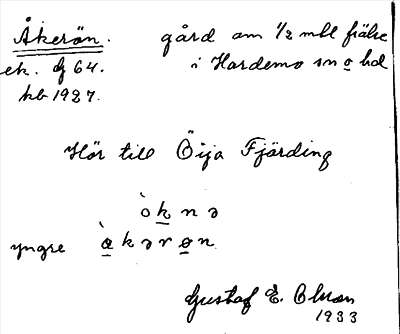 Åkerön. gård om 1/2 mtl frälse
ek. bl 64. i Hardemo sn o hd
kb 1927.
Hör till Öija Fjärding
òknə
yngre àkərøn
Gustaf E. Olsson
1933